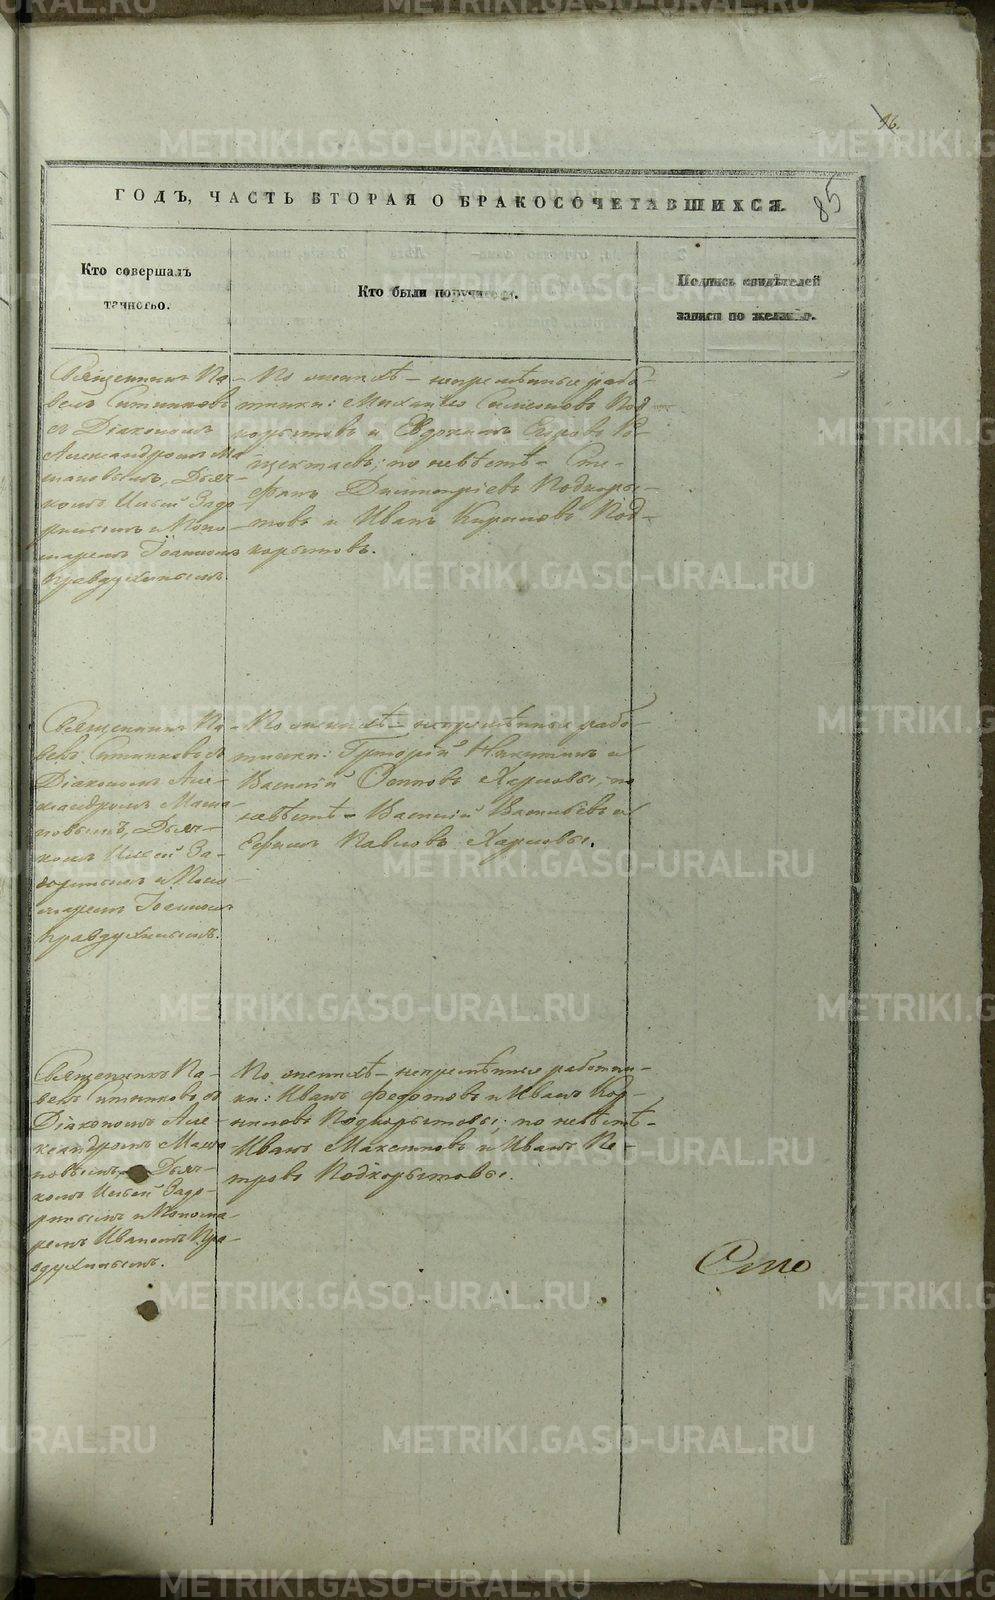 16.
85
ГОДЪ, ЧАСТЬ ВТОРАЯ О БРАКОСОЧЕТАВШИХСЯ.
Кто совершалъ
таинство.
Кто были поручители.
Подпись свидѣтелей
записи по желанію.
Священникъ Па-
велъ Ситниковъ
съ Діакономъ
Александромъ Ма-
мановымъ, Дьяч-
комъ Ильей Задо-
ринымъ и Поно-
маремъ Іоанномъ
Правдухинымъ.
По женихѣ - непремѣнные рабо-
тники: Михайло Симеоновъ Под-
корытовъ и Евдокимъ Егоровъ
по невѣстѣ - Сте-
фанъ Димитріевъ Подкоры-
товъ и Иванъ Кириловъ Под-
корытовъ.
Священникъ Па-
велъ Ситниковъ съ
Діакономъ Але-
ксандромъ Мама-
новымъ, Дьяч-
комъ Ильей За-
доринымъ и Поно-
маремъ Іоанномъ
Правдухинымъ.
По женихѣ - непремѣнные рабо-
тники: Григорій Никитинъ и
Василій Осиповъ Харловы, по
невѣстѣ - Василій Васильевъ и
Ефимъ Павловъ Харловы.
Священникъ Па-
велъ Ситниковъ съ
Діакономъ Але-
ксандромъ Мама-
новымъ, Дьяч-
комъ Ильей Задо-
ринымъ и Понома-
ремъ Иваномъ Пра-
вдухинымъ.
По женихѣ - непремѣнные работни-
ки: Иванъ Федотовъ и Иванъ Кор-
ниловъ Подкорытовы; по невѣстѣ -
Иванъ Максимовъ и Иванъ Пе-
тровъ Подкорытовы.
METRIKI.GASO-URAL.RU